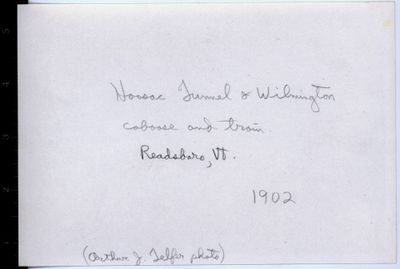 Hoosac Tunnel & Wilmington
caboose and train
Readsboro, Vt.
1902
(Arthur J. Telfer photo)